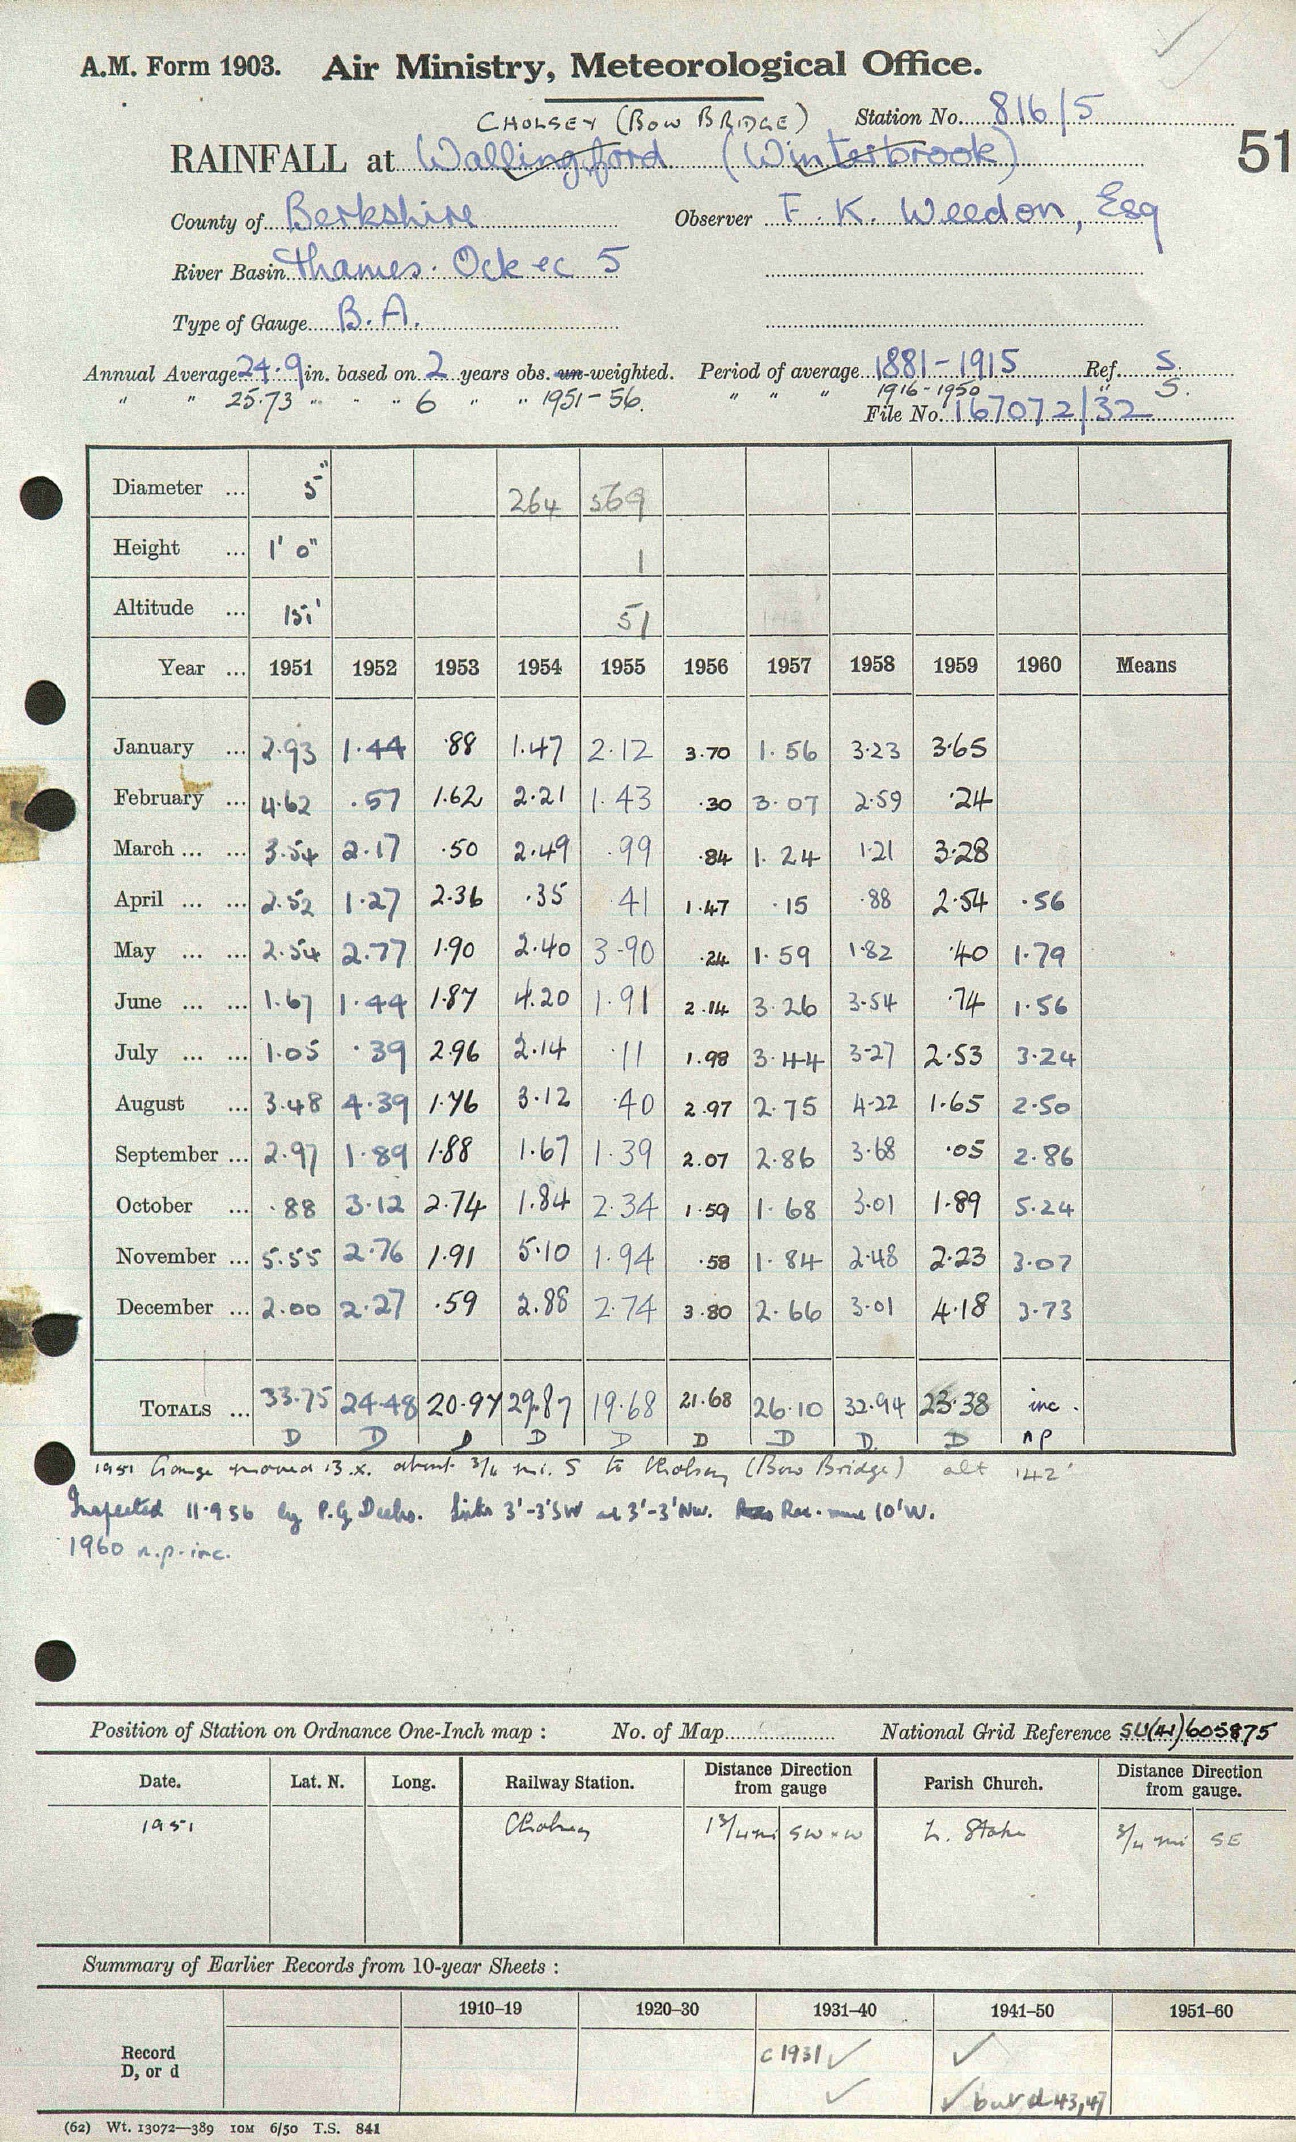 A.M. Form 1903. Air Ministry, Meteorological Office.
CHOLSEY (BOW BRIDGE) Station No. 816/5
RAINFALL at Wallingford (Winterbrook) 51
County of Berkshire Observer F. K. Weedon, Esq
River Basin Thames. Ock ec 5
Type of Gauge B.A.
Annual Average 24.9 in. based on 2 years obs. un-weighted. Period of average 1881-1915 Ref. S.
" " 25.73 " " " 6 " " 1951-56. " " " 1916-1950 " S.
File No. 167072/32
Diameter ... 5" 264 569
Height ... 1' 0" 1
Altitude ... 151' 51
Year ... 1951 1952 1953 1954 1955 1956 1957 1958 1959 1960 Means
January ... 2.93 1.44 .88 1.47 2.12 3.70 1.56 3.23 3.65
February ... 4.62 .57 1.62 2.21 1.43 .30 3.07 2.59 .24
March ... ... 3.54 2.17 .50 2.49 .99 .84 1.24 1.21 3.28
April ... ... 2.52 1.27 2.36 .35 .41 1.47 .15 .88 2.54 .56
May ... ... 2.54 2.77 1.90 2.40 3.90 .24 1.59 1.82 .40 1.79
June ... ... 1.67 1.44 1.87 4.20 1.91 2.14 3.26 3.54 .74 1.56
July ... ... 1.05 .39 2.96 2.14 .11 1.98 3.44 3.27 2.53 3.24
August ... 3.48 4.39 1.76 3.12 .40 2.97 2.75 4.22 1.65 2.50
September ... 2.97 1.89 1.88 1.67 1.39 2.07 2.86 3.68 .05 2.86
October ... .88 3.12 2.74 1.84 2.34 1.59 1.68 3.01 1.89 5.24
November ... 5.55 2.76 1.91 5.10 1.94 .58 1.84 2.48 2.23 3.07
December ... 2.00 2.27 .59 2.88 2.74 3.80 2.66 3.01 4.18 3.73
TOTALS ... 33.75 24.48 20.97 29.87 19.68 21.68 26.10 32.94 23.38 inc.
D D D D D D D D D n p
1951 Gauge moved 13.x. about 3/4 mi. S to Cholsey (Bow Bridge) alt 142'
Inspected 11.9.56 by P.G. 3'-3'SW 3'-3'NW. 10'W.
1960 n.p. inc.
Position of Station on Ordnance One-Inch map : No. of Map National Grid Reference SU(41)605875
Date. Lat. N. Long. Railway Station. Distance Direction from gauge Parish Church. Distance Direction from gauge.
1951 Cholsey 1 3/4 mi SW x W N. Stoke 3/4 mi SE
Summary of Earlier Records from 10-year Sheets :
1910–19 1920–30 1931–40 1941–50 1951–60
Record D, or d c 1931 ✓ ✓
✓ ✓ but d 43,47
(62) Wt. 13072—389 10M 6/50 T.S. 841